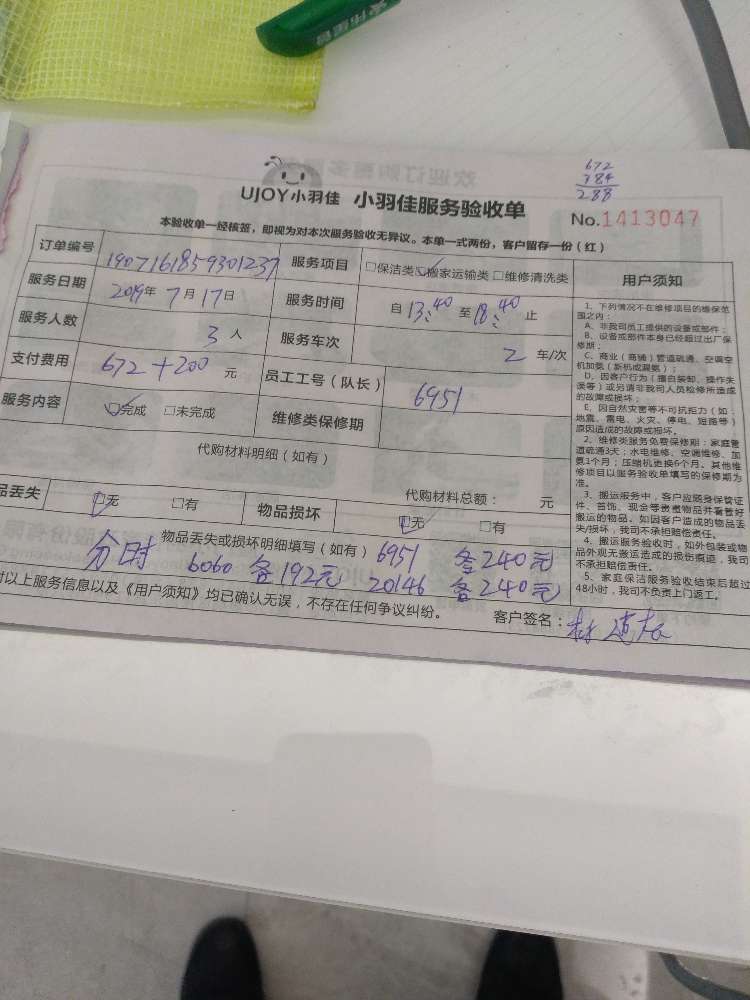 672
384
288
UJOY小羽佳 小羽佳服务验收单
No.1413047
本验收单一经核签，即视为对本次服务验收无异议。本单一式两份，客户留存一份（红）
订单编号 1907161859301237 服务项目 □保洁类 □搬家运输类 □维修清洗类
服务日期 2019年7月17日 服务时间 自 13:40 至 18:40 止
服务人数 3人 服务车次 2 车/次
支付费用 672+200 元 员工工号（队长） 6951
服务内容 □完成 □未完成 维修类保修期
代购材料明细（如有）
代购材料总额： 元
品丢失 □无 □有 物品损坏 □无 □有
物品丢失或损坏明细填写（如有）6951 各240元
分时 6060 各192元 20146 各240元
对以上服务信息以及《用户须知》均已确认无误，不存在任何争议纠纷。 客户签名：
用户须知
1、下列情况不在维修项目的维保范
围之内：
A、非我司员工提供的设备或部件；
B、设备或部件本身已经超过出厂保
修期；
C、商业（商铺）管道疏通、空调空
机加氨（新机或漏氨）；
D、因客户行为（擅自装卸、操作失
误等）或另请非我司人员检修所造成
的故障或损坏；
E、因自然灾害等不可抗拒力（如：
地震、雷电、火灾、停电、短路等）
原因造成的故障或损坏。
2、维修类服务免费保修期：家庭管
道疏通3天；水电维修、空调维修、加
氨1个月；压缩机更换6个月。其他维
修项目以服务验收单填写的保修期为
准。
3、搬运服务中，客户应随身保管证
件、首饰、现金等贵重物品并看管好
搬运的物品。如因客户造成的物品丢
失/损坏，我司不承担赔偿责任。
4、搬运服务验收时，如外包装或物
品外观无搬运造成的损伤痕迹，我司
不承担赔偿责任。
5、家庭保洁服务验收结束后超过
48小时，我司不负责上门返工。